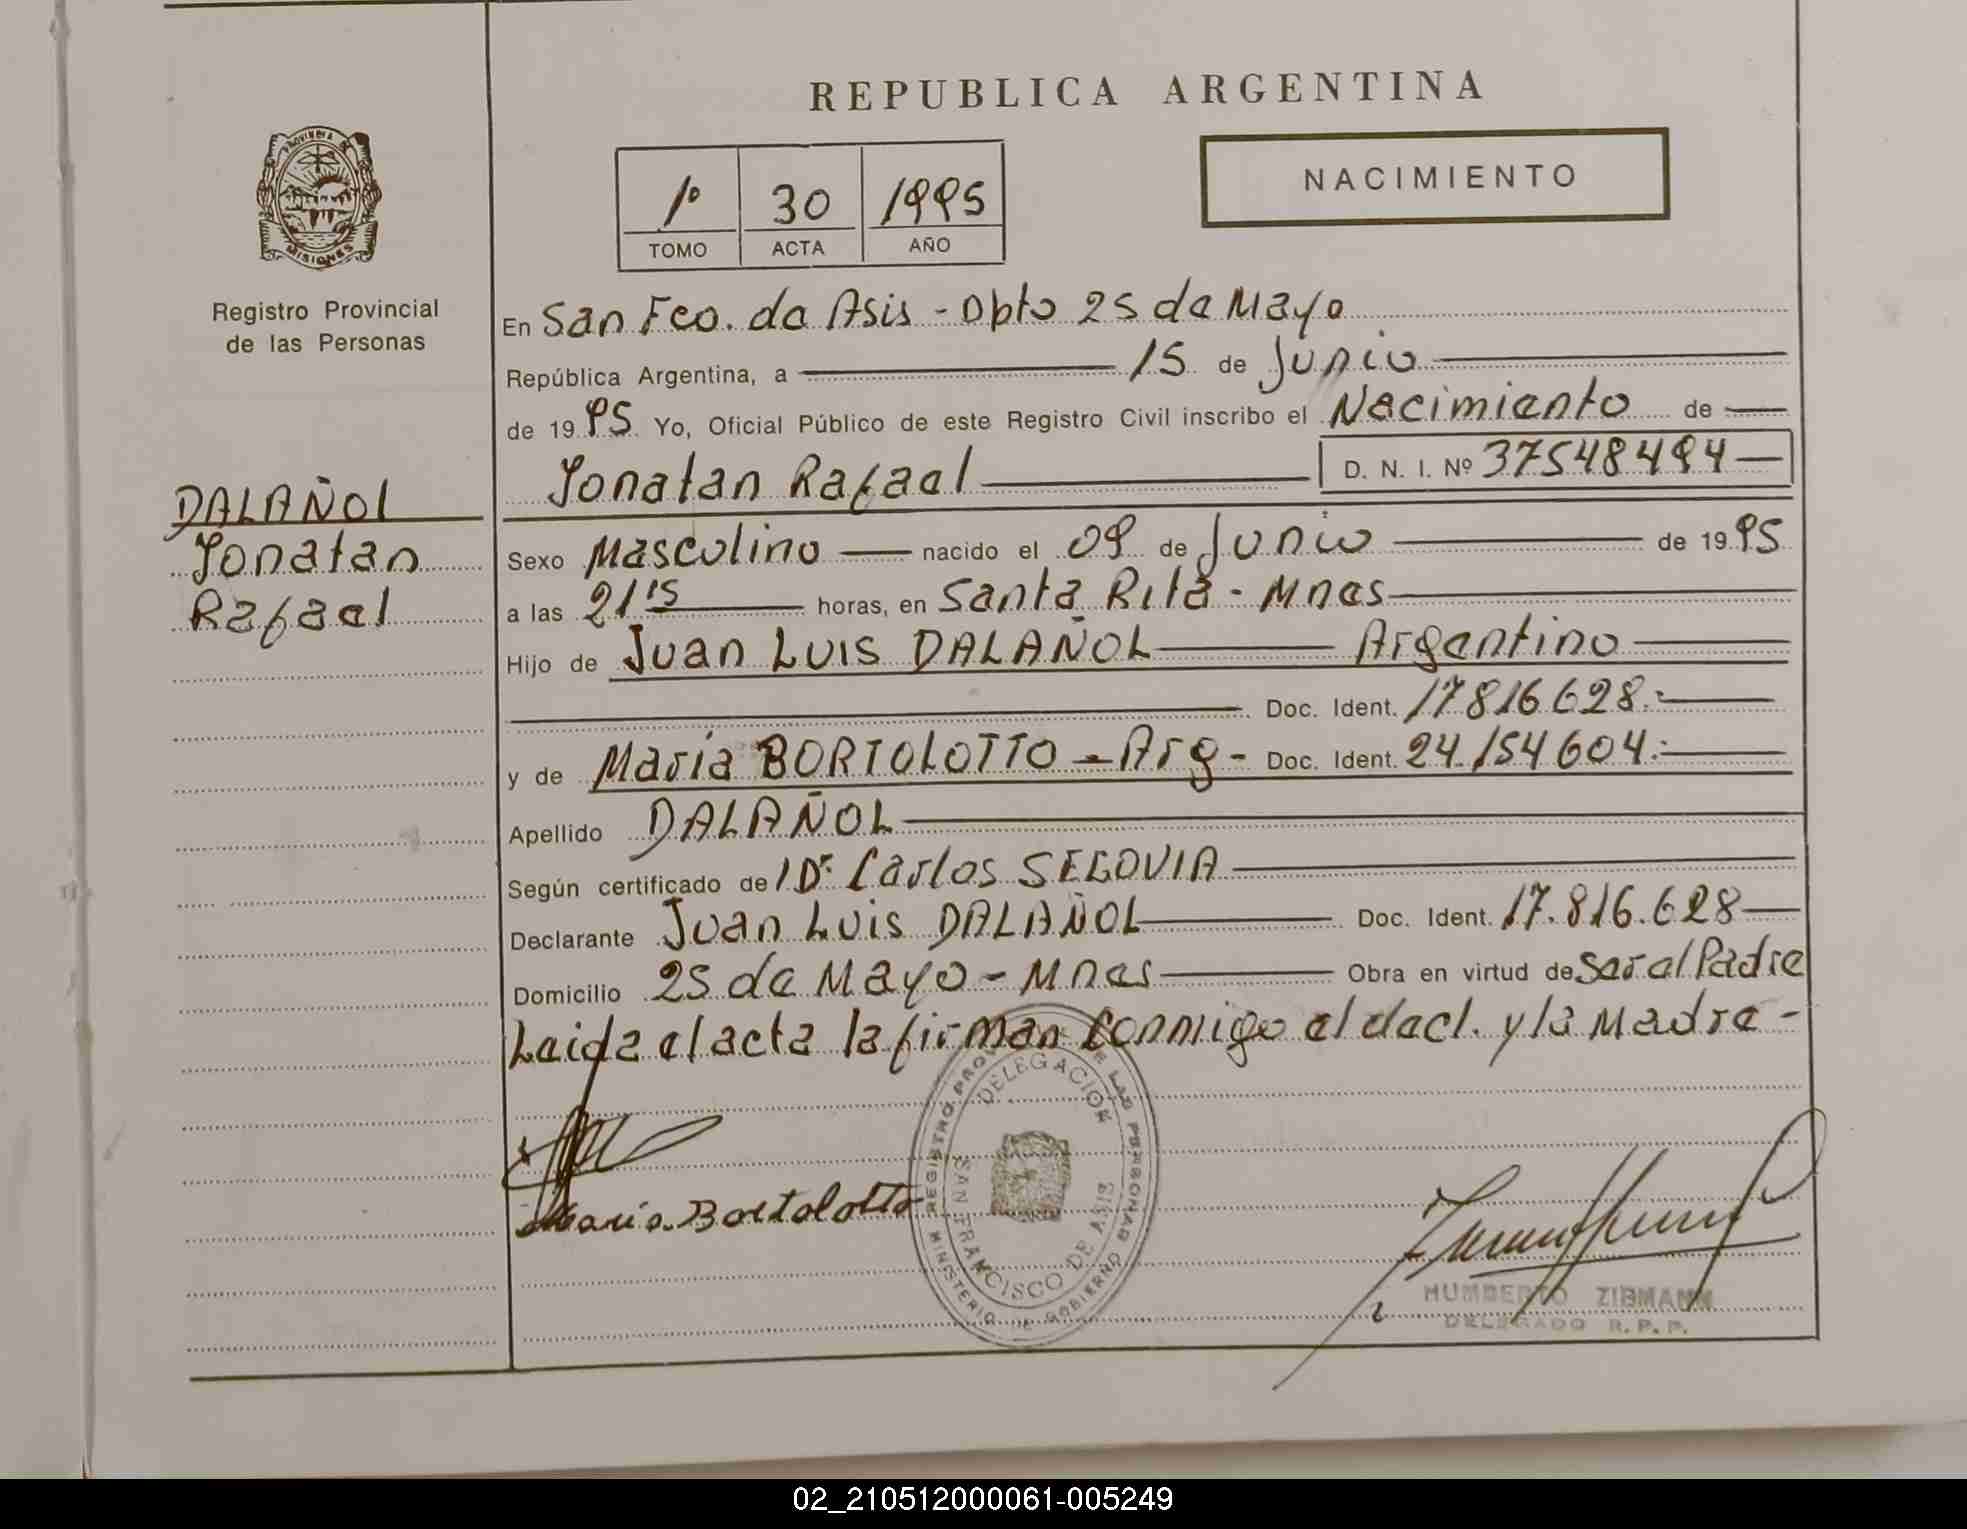 REPUBLICA ARGENTINA
PROVINCIA DE
MISIONES
Registro Provincial
de las Personas
1º 30 1995
TOMO ACTA AÑO
NACIMIENTO
En San Fco. de Asis - Dpto 25 de Mayo
República Argentina, a 15 de Junio
de 1995 Yo, Oficial Público de este Registro Civil inscribo el Nacimiento de
Jonatan Rafael D. N. I. Nº 37548494
DALAÑOL
Jonatan
Rafael
Sexo Masculino nacido el 09 de Junio de 1995
a las 21 15 horas, en Santa Rita - Mnes
Hijo de Juan Luis DALAÑOL Argentino
Doc. Ident. 17816628.-
y de María BORTOLOTTO - Arg - Doc. Ident. 24.154604.-
Apellido DALAÑOL
Según certificado de Dr. Carlos SEGOVIA
Declarante Juan Luis DALAÑOL Doc. Ident. 17.816.628
Domicilio 25 de Mayo - Mnes Obra en virtud de Ser el Padre
Leida el acta la firman Conmigo el decl. y la Madre -
Maria Bortolotto
REGISTRO PROV DE LAS PERSONAS
DELEGACION
SAN FRANCISCO DE ASIS
MINISTERIO DE GOBIERNO
HUMBERTO ZIBMANN
DELEGADO R. P. P.
02_210512000061-005249